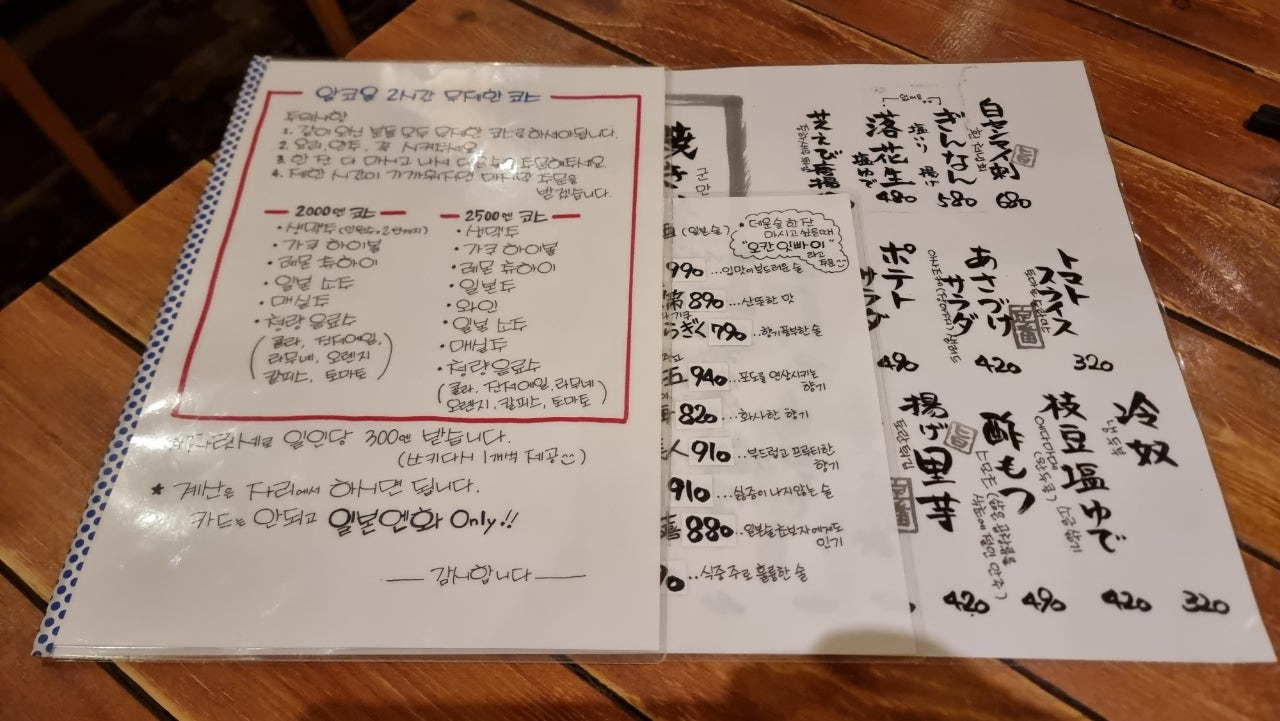 알코올 2시간 무제한 코스
주의사항
1. 같이 오신 분들 모두 무제한 코스로 하셔야됩니다.
2. 요리, 안주, 꼭 시켜주세요
3. 한 잔 다 마시고 나서 다음 주문해주세요.
4. 제한 시간이 가까워지면 마지막 주문을
받겠습니다.
2000엔 코스
• 생맥주
• 가쿠 하이볼
• 레몬 츄하이
• 일본 소주
• 매실주
• 청량 음료수
(콜라, 진저에일,
라무네, 오렌지
칼피스, 토마토)
2500엔 코스
• 생맥주
• 가쿠 하이볼
• 레몬 츄하이
• 일본주
• 와인
• 일본 소주
• 매실주
• 청량음료수
(콜라, 진저에일, 라무네
오렌지, 칼피스, 토마토)
자리세로 일인당 300엔 받습니다.
(쯔키다시 1개씩 제공)
★ 계산은 자리에서 하시면 됩니다.
카드는 안되고 일본엔화 Only!!
감사합니다
焼き
군만
(일본술)
* 데운술 한 잔
마시고 싶을때
"오칸 입빠이"
라고
주문
990 ...입맛이 부드러운 술
890 ...산뜻한 맛
らぎく 790 ...향기 풍부한 술
940 ...포도를 연상시키는
향기
820 ...화사한 향기
人 910 ...부드럽고 프루티한
향기
910 ...싫증이 나지않는 술
880 ...일본술 초보자에게도
인기
...식중주로 훌륭한 술
白センマイ刺
680
ぎんなん
揚げ
580
落花生
塩ゆで
480
芝えび唐揚
トマトスライス
320
あさづけ
420
サラダ
ポテトサラダ
490
冷奴
냉두부
320
枝豆塩ゆで
에다마메(완두콩) 소금 삶기
420
酢もつ
490
揚げ里芋
토란튀김
420